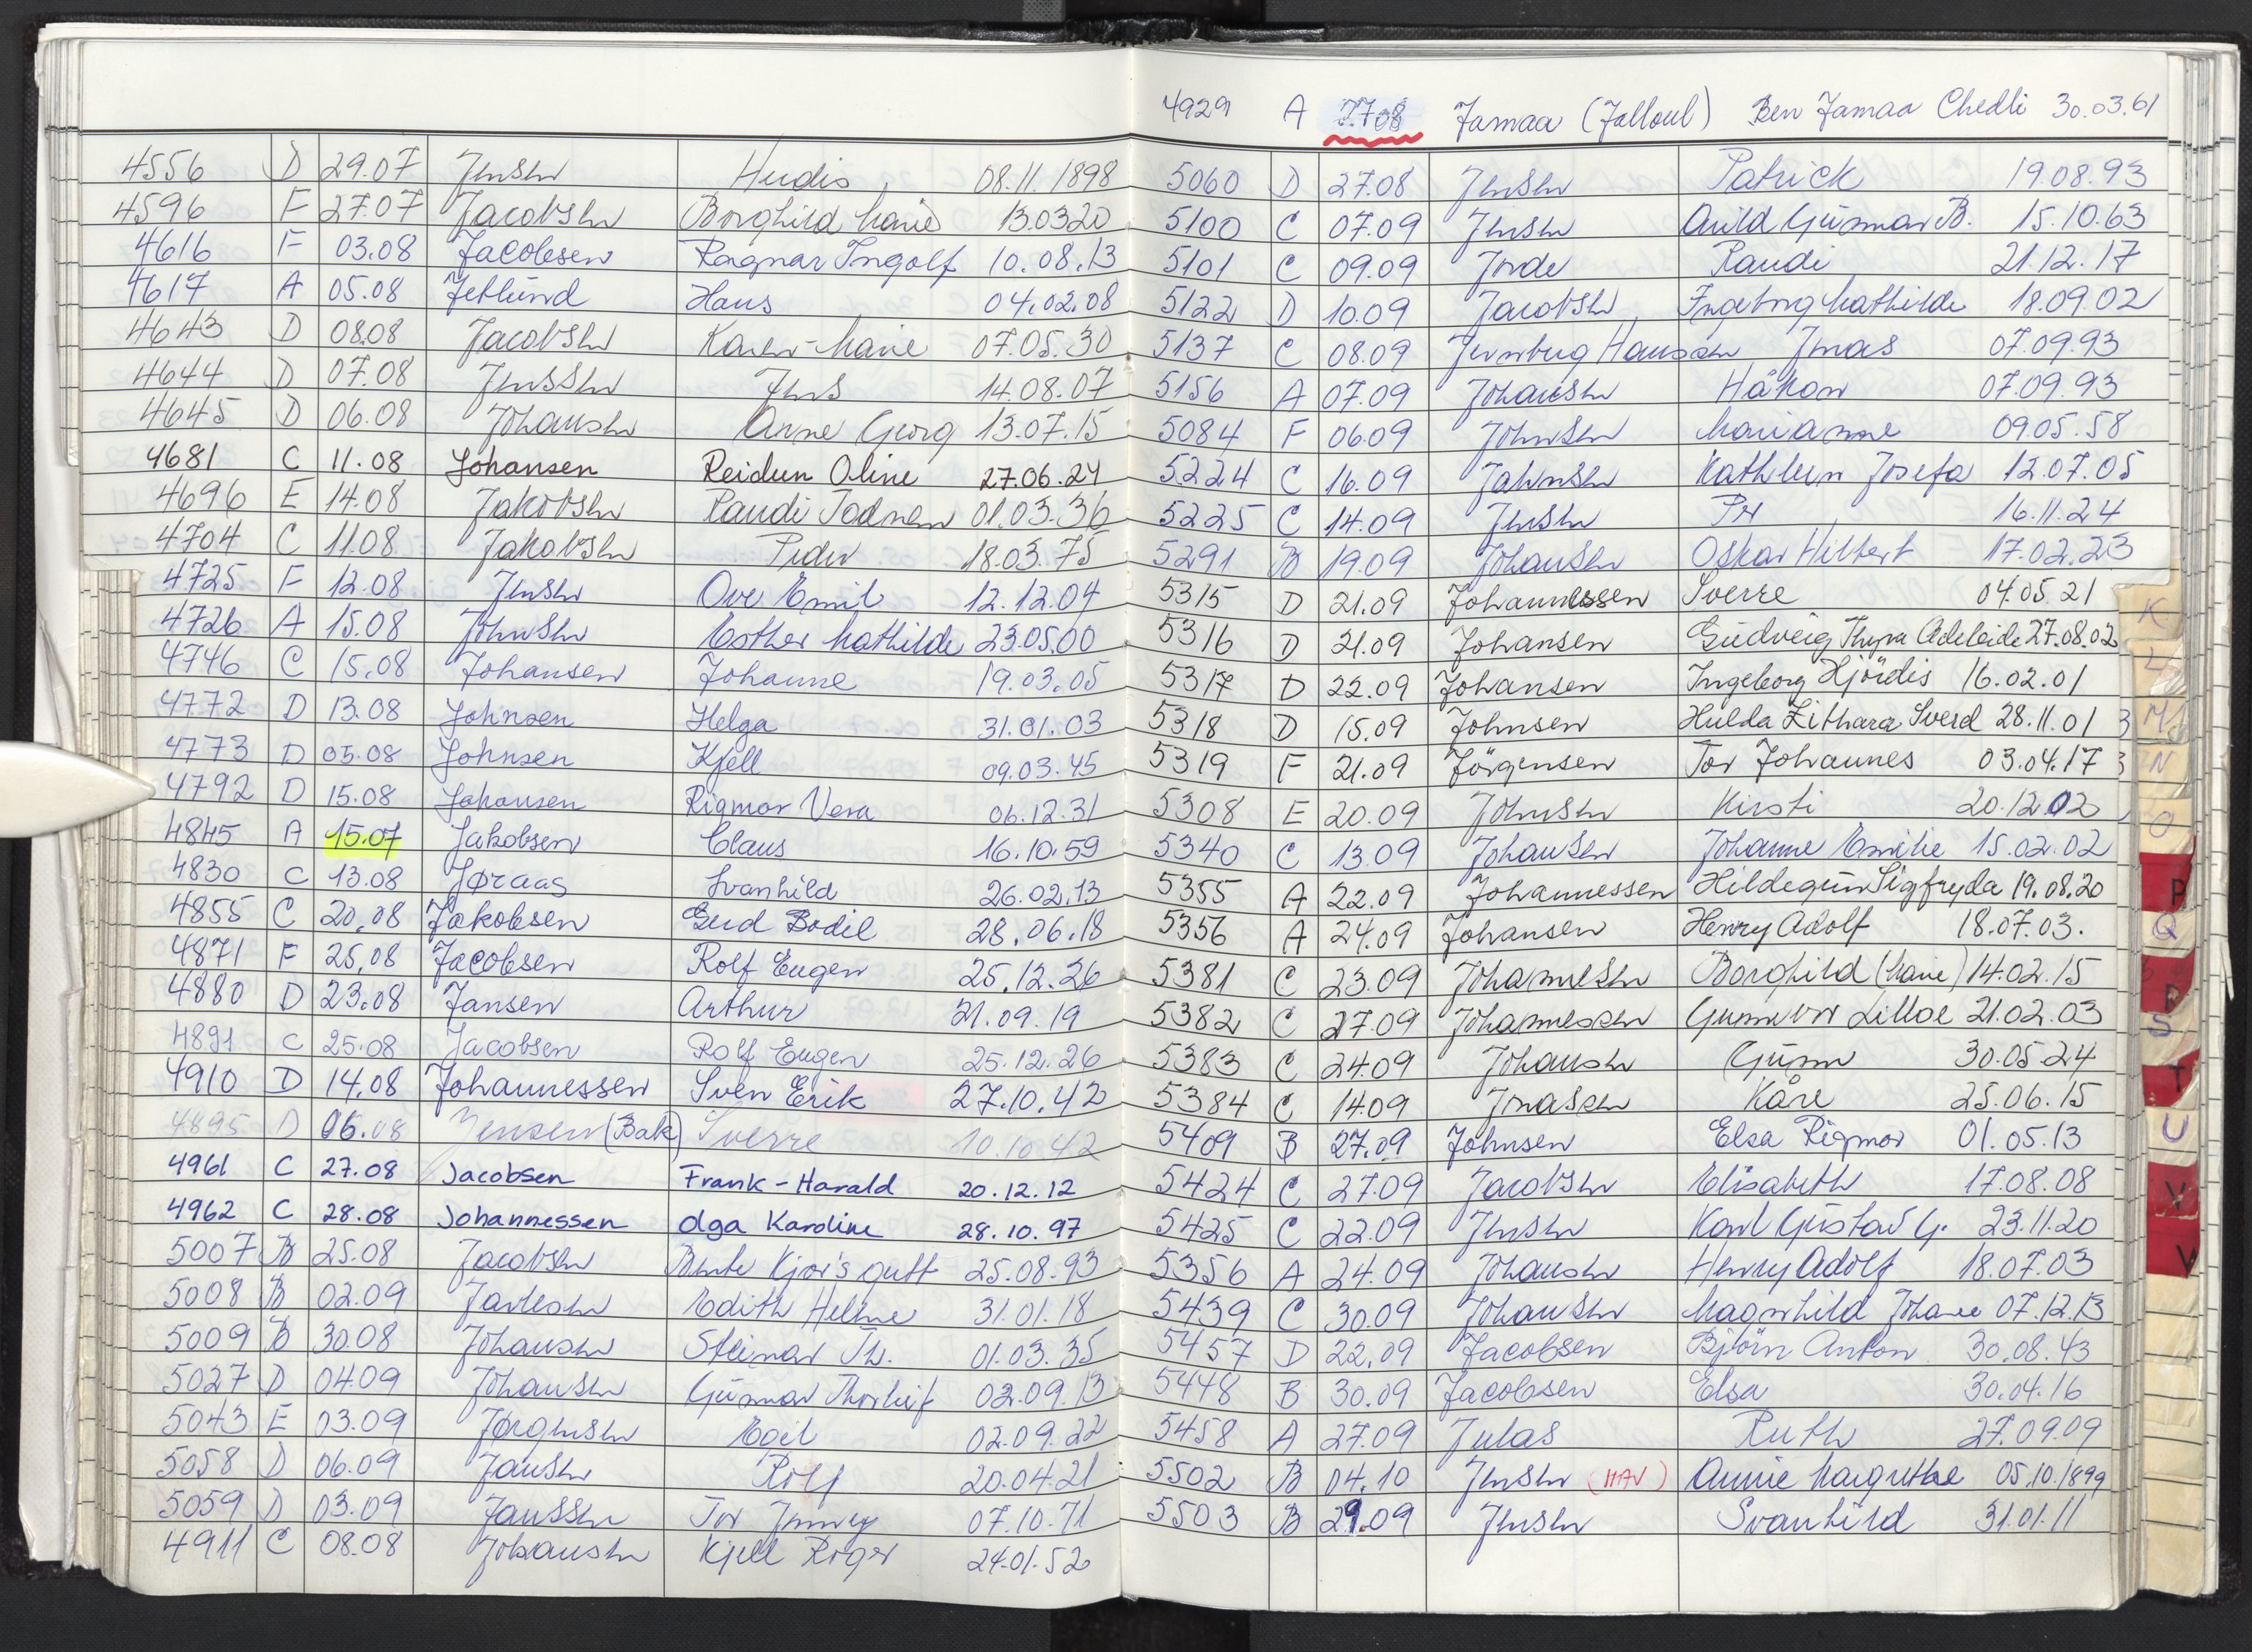 4556 D 29.07 Jensen Herdis 08.11.1898
4596 F 27.07 Jacobsen Borghild Marie 13.03.20
4616 F 03.08 Jacobsen Ragnar Ingolf 10.08.13
4617 A 05.08 Jetlund Hans 04.02.08
4643 D 08.08 Jacobsen Karen-Marie 07.05.30
4644 D 07.08 Jenssen Jens 14.08.07
4645 D 06.08 Johansen Arne Georg 13.07.15
4681 C 11.08 Johansen Reidun Oline 27.06.24
4696 E 14.08 Jakobsen Randi Todnem 01.03.36
4704 C 11.08 Jakobsen Peder 18.03.75
4725 F 12.08 Jensen Ove Emil 12.12.04
4726 A 15.08 Johnsen Esther Mathilde 23.05.00
4746 C 15.08 Johansen Johanne 19.03.05
4772 D 13.08 Johnsen Helga 31.01.03
4773 D 05.08 Johnsen Kjell 09.03.45
4792 D 15.08 Johansen Rigmor Vera 06.12.31
4845 A 15.07 Jakobsen Claus 16.10.59
4830 C 13.08 Jøraas Svanhild 26.02.13
4855 C 20.08 Jakobsen Gerd Bodil 28.06.18
4871 F 25.08 Jacobsen Rolf Eugen 25.12.26
4880 D 23.08 Jansen Arthur 21.09.19
4891 C 25.08 Jacobsen Rolf Eugen 25.12.26
4910 D 14.08 Johannessen Sven Erik 27.10.42
4895 D 06.08 Jensen (Bak) Sverre 10.10.42
4961 C 27.08 Jacobsen Frank-Harald 20.12.12
4962 C 28.08 Johannessen Olga Karoline 28.10.97
5007 B 25.08 Jacobsen Bente Kjør's gutt 25.08.93
5008 B 02.09 Jarlesen Edith Helene 31.01.18
5009 B 30.08 Johansen Steinar Th. 01.03.35
5027 D 04.09 Johansen Gunnar Thorleif 02.09.13
5043 E 03.09 Jørgensen Egil 02.09.22
5058 D 06.09 Jansen Rolf 20.04.21
5059 D 03.09 Janssen Tor Jonny 07.10.71
4911 C 08.08 Johansen Kjell Roger 24.01.52
4929 A 7.7.08 Jamaa (Jalloul) Ben Jamaa Chedli 30.03.61
5060 D 27.08 Jensen Patrick 19.08.93
5100 C 07.09 Jensen Arild Gunnar B. 15.10.63
5101 C 09.09 Jorde Randi 21.12.17
5122 D 10.09 Jacobsen Ingeborg Mathilde 18.09.02
5137 C 08.09 Jernberg Hansen Jonas 07.09.93
5156 A 07.09 Johansen Håkon 07.09.93
5084 F 06.09 Johnsen Marianne 09.05.58
5224 C 16.09 Jahnsen Kathleen Josefa 12.07.05
5225 C 14.09 Jensen Per 16.11.24
5291 B 19.09 Johansen Oskar Hilbert 17.02.23
5315 D 21.09 Johannessen Sverre 04.05.21
5316 D 21.09 Johansen Gudveig Thyra Adeleide 27.08.02
5317 D 22.09 Johansen Ingeborg Hjördis 16.02.01
5318 D 15.09 Johnsen Hulda Zithara Sverd 28.11.01
5319 F 21.09 Jörgensen Tor Johannes 03.04.17
5308 E 20.09 Johnsen Kirsti 20.12.02
5340 C 13.09 Johansen Johanne Emilie 15.02.02
5355 A 22.09 Johannessen Hildegun Sigfryda 19.08.20
5356 A 24.09 Johansen Henry Adolf 18.07.03.
5381 C 23.09 Johannesen Borghild (Marie) 14.02.15
5382 C 27.09 Johannessen Gunnvor Lilloe 21.02.03
5383 C 24.09 Johansen Gunn 30.05.24
5384 C 14.09 Jonassen Kåre 25.06.15
5409 B 27.09 Johnsen Elsa Rigmor 01.05.13
5424 C 27.09 Jacobsen Elisabeth 17.08.08
5425 C 22.09 Jensen Karl Gustav G. 23.11.20
5356 A 24.09 Johansen Henry Adolf 18.07.03
5439 C 30.09 Johansen Magnhild Johanne 07.12.13
5457 D 22.09 Jacobsen Björn Anton 30.08.43
5448 B 30.09 Jacobsen Elsa 30.04.16
5458 A 27.09 Julas Ruth 27.09.09
5502 B 04.10 Jensen (HAV) Annie Margrethe 05.10.1899
5503 B 29.09 Jensen Svanhild 31.01.11
K
L
M
N
O
P
Q
R
S
T
U
V